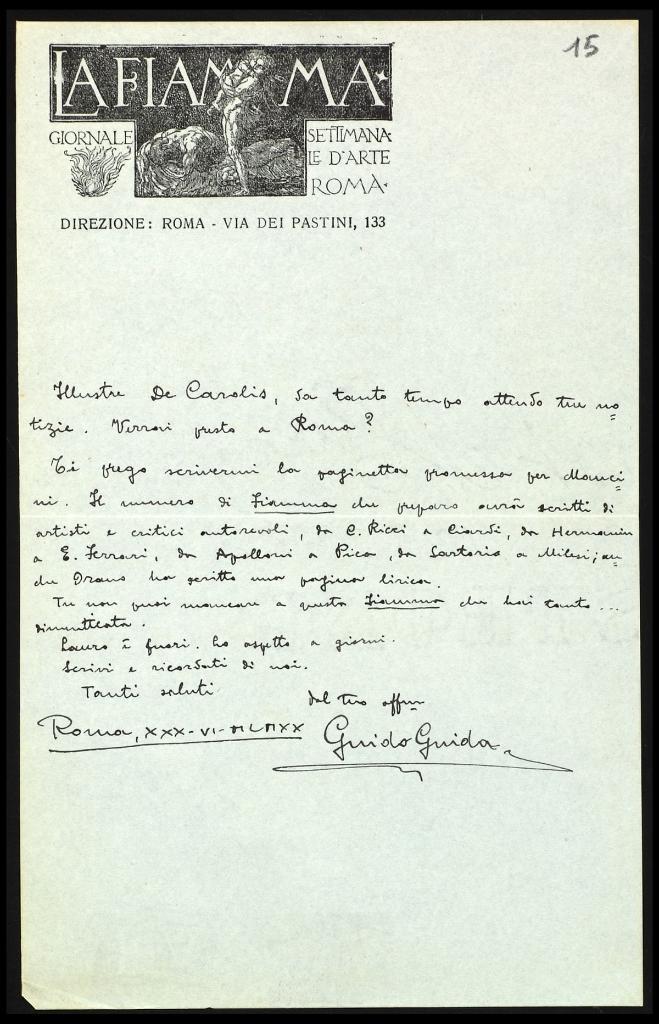 15
LA FIAMMA
GIORNALE SETTIMANA
LE D'ARTE
ROMA
DIREZIONE: ROMA - VIA DEI PASTINI, 133
Illustre De Carolis, da tanto tempo attendo tue no=
tizie. Verrai presto a Roma?
Ti prego scrivermi la paginetta promessa per Manci=
ni. Il numero di Fiamma che preparo avrà scritti di
artisti e critici autorevoli, da C. Ricci a Ciardi, da Hermanin
a E. Ferrari, da Apolloni a Pica, da Sartorio a Milesi; an=
che Orano ha scritto una pagina lirica.
Tu non puoi mancare a questa Fiamma che hai tanto...
dimenticata.
Lauro è fuori. Lo aspetto a giorni.
Scrivi e ricordati di noi.
Tanti saluti
dal tuo affmo
Roma, XXX-VI-MCMXX
Guido Guida